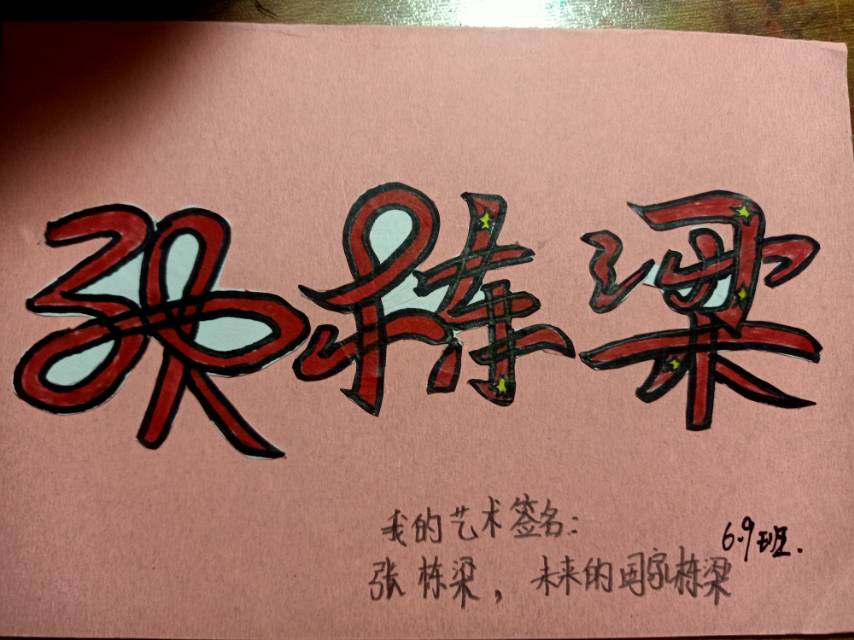 张栋梁
我的艺术签名：
6.9班.
张栋梁，未来的国家栋梁